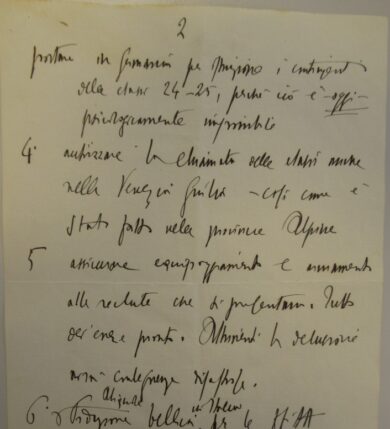 2
portare in Germania per istruzione i contingenti
delle classi 24-25, perché ciò è - oggi -
psicologicamente impossibile
4° autorizzare la chiamata delle classi anche
nella Venezia Giulia - così come è
stato fatto nelle provincie Alpine
5 assicurare equipaggiamento e armamento
alle reclute che si presentano. Tutto
dev'essere pronto. Altrimenti la delusione
avrà conseguenze disastrose.
6°